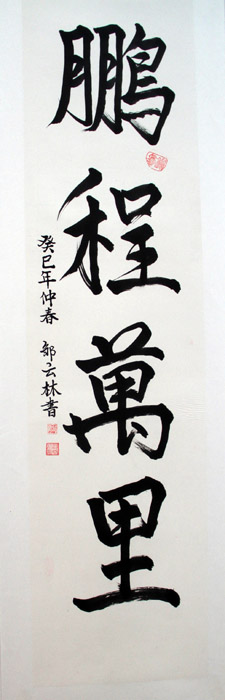 鵬程萬里
癸巳年仲春 郭云林書